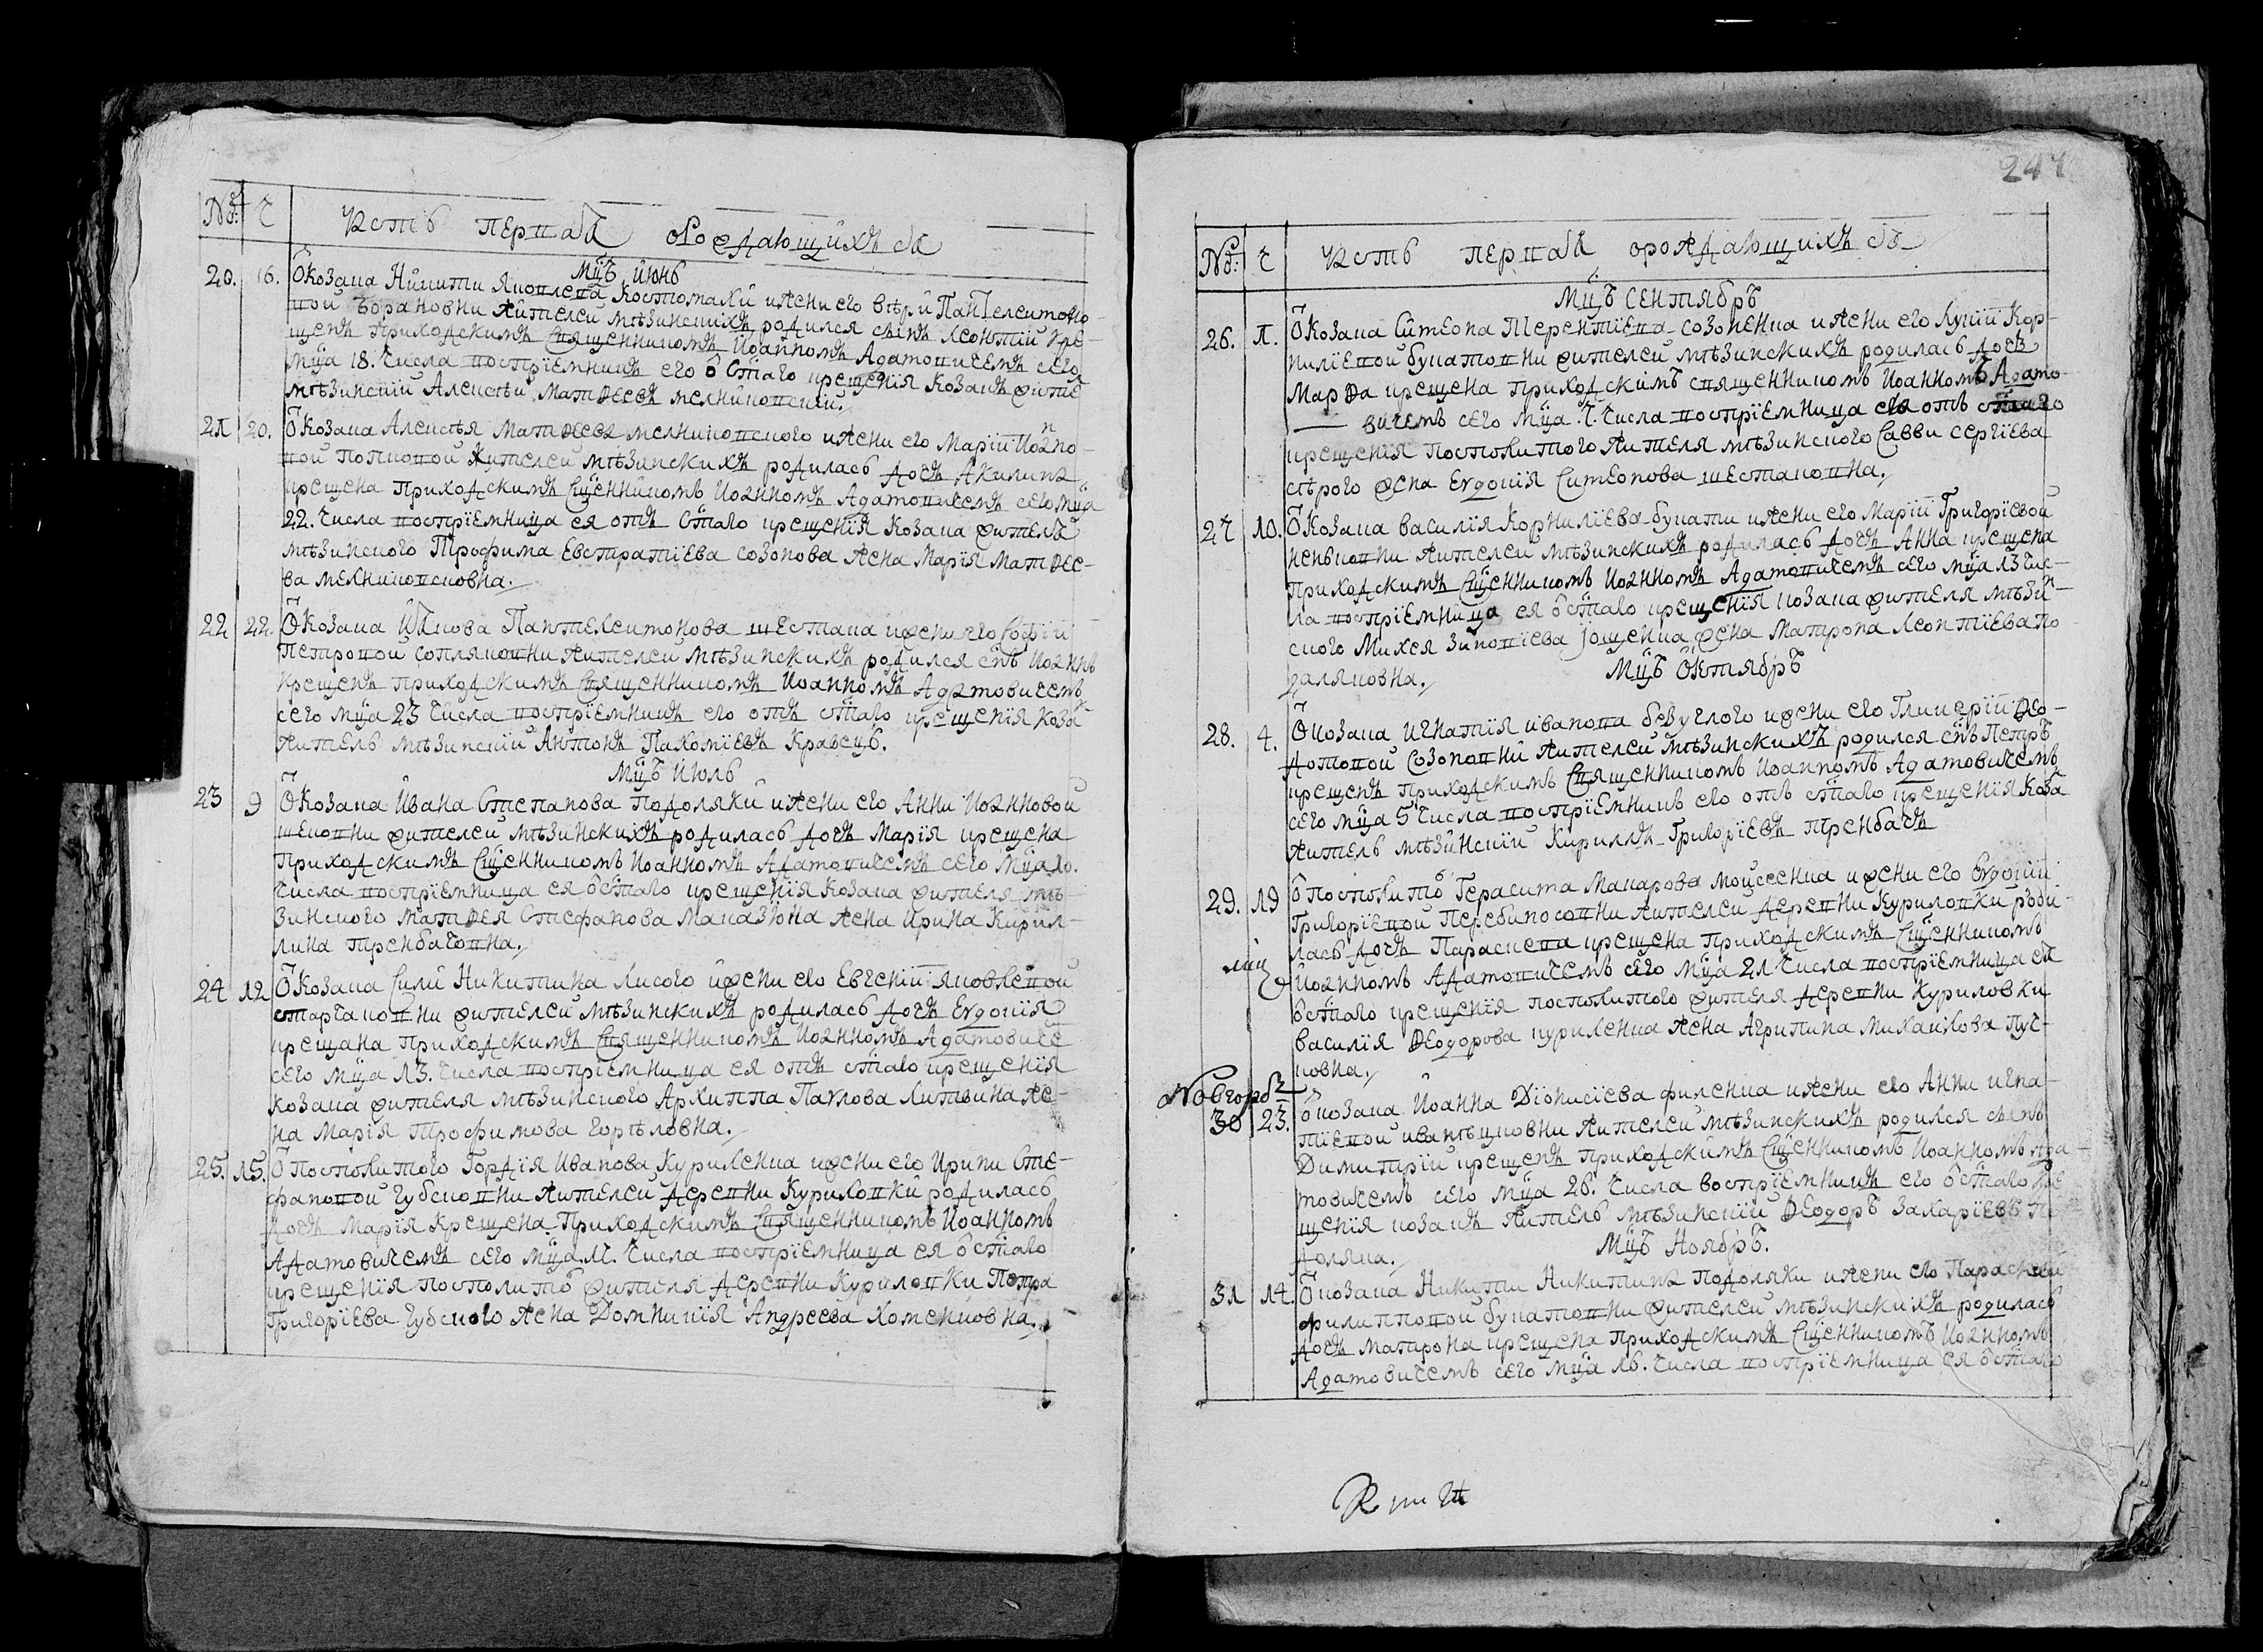 №: Ч Часть первая ораждающихся
Мцъ июнь
20. 16. У козака Никити Яковлева Костомахи и жени его Вѣри Пантелеимоно-
вой Борановни жителей мѣзинскихъ родился сынъ Леонтій кре-
щенъ приходскимъ священникомъ Иоанномъ Адамовичемъ сего
мца 18. числа воспріемникъ его о стаго крещенія козакъ жите
мѣзинскій Алексѣй Матвеевъ мелниковскій.
21 20. У козака Алексѣя Матвеева мелниковского и жени его Маріи Иоанно-
вой Попковой жителей мѣзинскихъ родилась дочь Акилина
крещена приходскимъ сщенникомъ Иоанномъ Адамовичемъ сего мца
22. числа воспріемница ея отъ стаго крещенія козака жителя
мѣзинского Трофима Евстратіева Созонова жена Марія Матѳее-
ва мелниковсковна.
22 22. У козака Якова Пантелеимонова Шестака и жени его Софіи
Петровой Сопляковни жителей мѣзинскихъ родился снъ Иоаннъ
крещенъ приходскимъ священникомъ Иоанномъ Адамовичемъ
сего мца 23 числа воспріемникъ его отъ стаго крещенія коза
житель мѣзинскій Антонъ Пахоміевъ Кравецъ.
Мцъ Июль
23 9 У козака Ивана Степанова Подоляки и жени его Анни Иоанновой
жителей мѣзинскихъ родилась дочь Марія крещена
приходскимъ сщенникомъ Иоанномъ Адамовичемъ сего мца 10.
числа воспріемница ея о стаго крещенія козака жителя мѣ
зинского Матѳея Стефанова Маказюна жена Ирина Кирил-
лина Тренбачовна.
24 12 У козака Сили Никитина Лисого и жени его Евгеніи Яковлевой
Старчаковни жителей мѣзинскихъ родилась дочь Евдокія
крещана приходскимъ священникомъ Иоанномъ Адамовиче
сего мца 13. числа воспріемница ея отъ стаго крещенія
козака жителя мѣзинского Архиппа Павлова Литвина же-
на Марія Трофимова Горѣловна.
25. 15. У посполитого Гордія Иванова Куриленка и жени его Ирини Сте-
фановой Губсковни жителей деревни Куриловки родилась
дочь Марія крещена приходскимъ священникомъ Иоанномъ
Адамовичемъ сего мца 17. числа воспріемница ея о стаго
крещенія посполито жителя деревни Куриловки Петра
Григоріева Губского жена Домникія Андреева Хоменковна.
247
№: Ч Часть первая ораждающихся
Мцъ Сентябръ
26. 1. У козака Симеона Терентіева Созоненка и жени его Кор-
ниліевой Букатовни жителей мѣзинскихъ родилась дочь
Марѳа крещена приходскимъ священникомъ Иоанномъ Адамо-
вичемъ сего мца числа воспріемница ея отъ стаго
крещенія посполитого жителя мѣзинского Савви Сергіева
Сѣрого жена Евдокія Симеонова Шестаковна.
27 10. У козака Василія Корниліева Букати и жени его Маріи Григоріевой
жителей мѣзинскихъ родилась дочь Анна крещена
приходскимъ сщенникомъ Иоанномъ Адамовичемъ сего мца 13 чис-
ла воспріемница ея о стаго крещенія козака жителя мѣзин-
ского Михея Зиновіева Ющенка жена Матрона Леонтіева По-
даляковна.
Мцъ Октябръ
28. 4. У козака Игнатія Иванова Безуглого и жени его Гликеріи Ѳео-
домовой Созоновни жителей мѣзинскихъ родился снъ Петръ
крещенъ приходскимъ священникомъ Иоанномъ Адамовичемъ
сего мца 5 числа воспріемникъ его отъ стаго крещенія коза
житель мѣзинскій Кириллъ Григоріевъ Тренбачъ
29. 19 У посполито Герасима Макарова Мойсеенка и жени его Евдокіи
Григоріевой Перебиносовни жителей деревни Куриловки роди-
лась дочь Параскева крещена приходскимъ сщенникомъ
Иоанномъ Адамовичемъ сего мца 21 числа воспріемница ея
о стаго крещенія посполитого жителя деревни Куриловки
Василія Ѳеодорова Куриленка жена Агрипина Михайлова Пуч-
ковна.
30 23. У козака Иоанна Діонисіева Филенка и жени его Анни Игна-
тіевой жителей мѣзинскихъ родился сынъ
Димитрій крещенъ приходскимъ сщенникомъ Иоанномъ Ада-
мовичемъ сего мца 26. числа воспріемникъ его о стаго кре
щенія козакъ житель мѣзинскій Ѳеодоръ Захаріевъ По
доляка.
Мцъ Ноябръ.
31 14. У козака Никити Никитина Подоляки и жени его Параскеви
Филипповой Букатовни жителей мѣзинскихъ родилась
дочь Матрона крещена приходскимъ сщенникомъ Иоанномъ
Адамовичемъ сего мца 16. числа воспріемница ея о стаго